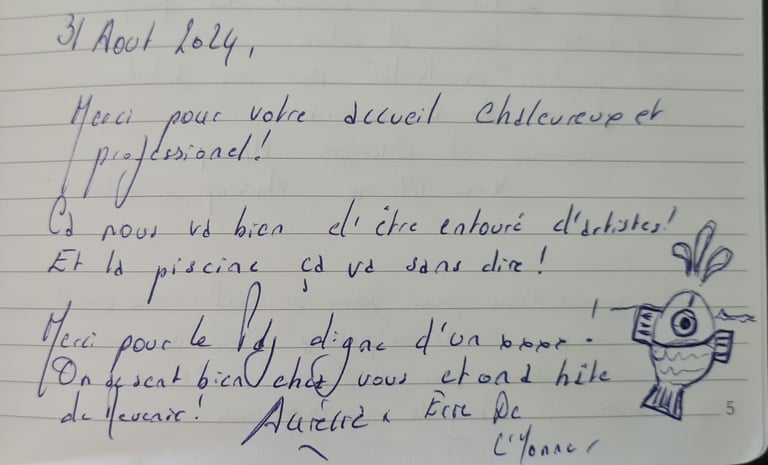 31 Aout 2024,
Merci pour votre accueil chaleureux et
professionel!
Ca nous va bien d'être entouré d'artistes!
Et la piscine ça va sans dire!
Merci pour le Pdj digne d'un xxxx!
On se sent bien chez vous et on a hâte
de revenir! Aurélie De
L'Yonne
5